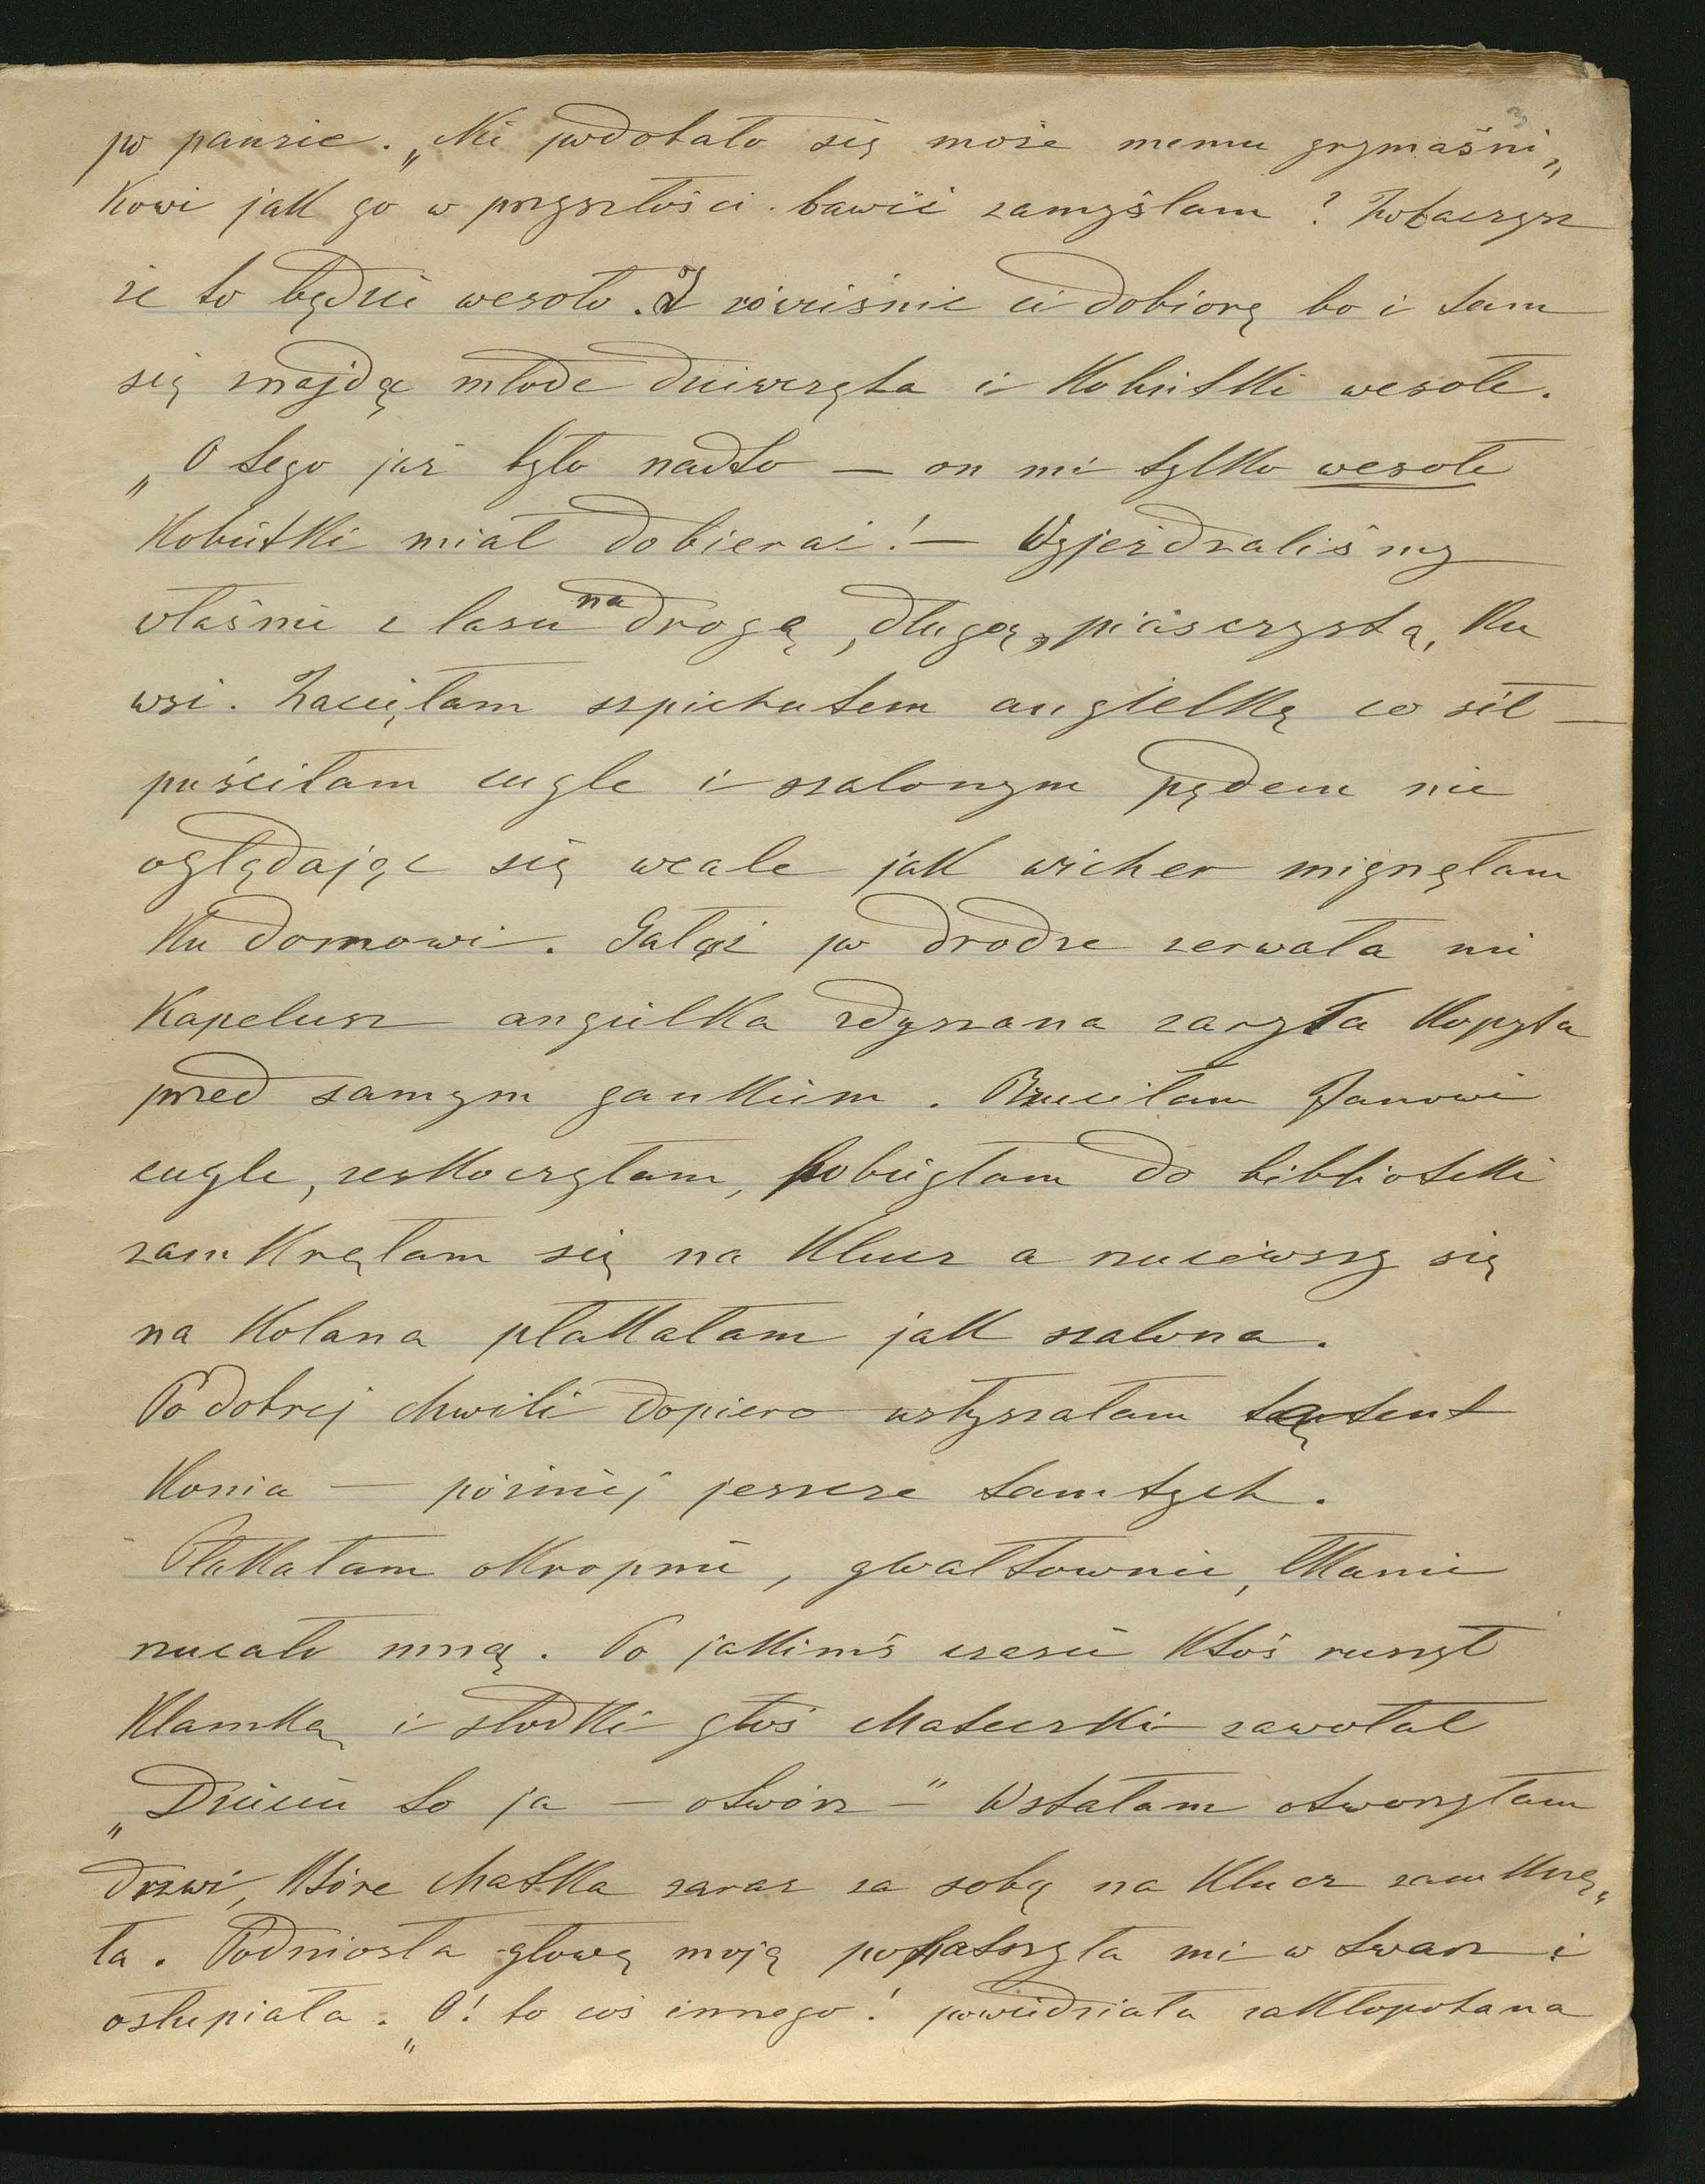 po pauzie. „Nie podobało się może memu grymaśni„
kowi jak go w przyszłości bawić zamyślam? Zobaczysz
że to będzie wesoło. I rówieśnie ci dobiorę bo i tam
się znajdą młode dziewczęta i kobietki wesołe.
„O tego już było nadto — on mi tylko wesołe
kobietki miał dobierać! — Wyjeżdżaliśmy
właśnie z lasu na drogę, długą, piasczystą, ku
wsi. Zacięłam szpicrutem angielkę co sił —
puściłam cugle i szalonym pędem nie
oglądając się wcale jak wicher mignęłam
ku domowi. Gałąź po drodze zerwała mi
kapelusz angielka zdyszana zaryła kopyta
przed samym gankiem. Rzuciłam Janowi
cugle, zeskoczyłam, pobiegłam do biblioteki
zamknęłam się na klucz a rzuciwszy się
na kolana płakałam jak szalona.
Po dobrej chwili dopiero usłyszałam tętent
konia — później jeszcze tamtych.
Płakałam okropnie, gwałtownie, łkanie
rzucało mną. Po jakimś czasie ktoś ruszył
klamką i słodki głos Mateczki zawołał
„Dziecię to ja — otwórz —" Wstałam otworzyłam
drzwi, które Matka zaraz za sobą na klucz zamknę„
ła. Podniosła głowę moją popatrzyła mi w twarz i
osłupiała. „O! to coś innego! powiedziała zakłopotana